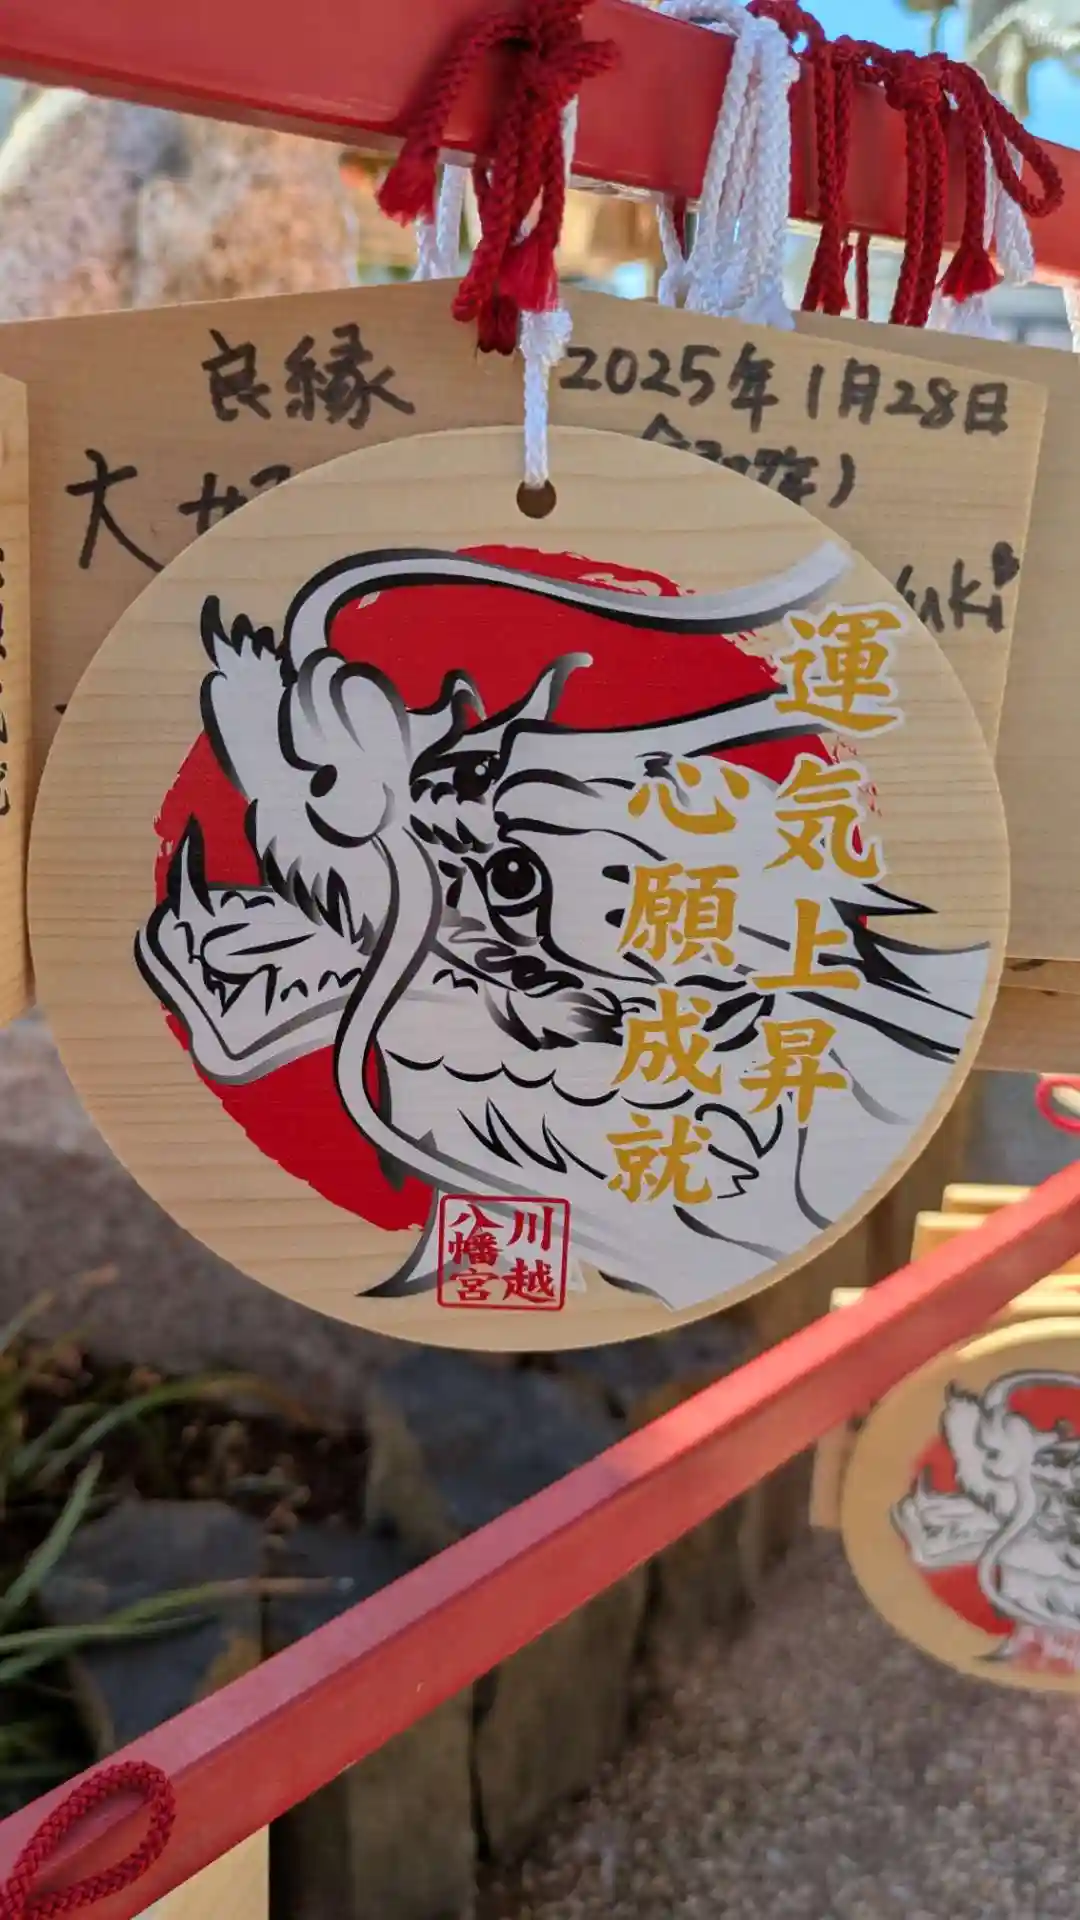 運気上昇
心願成就
川越
八幡宮
良縁
2025年1月28日
大